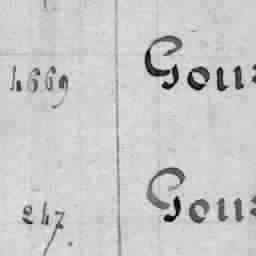 4669 Gou
247. Gou